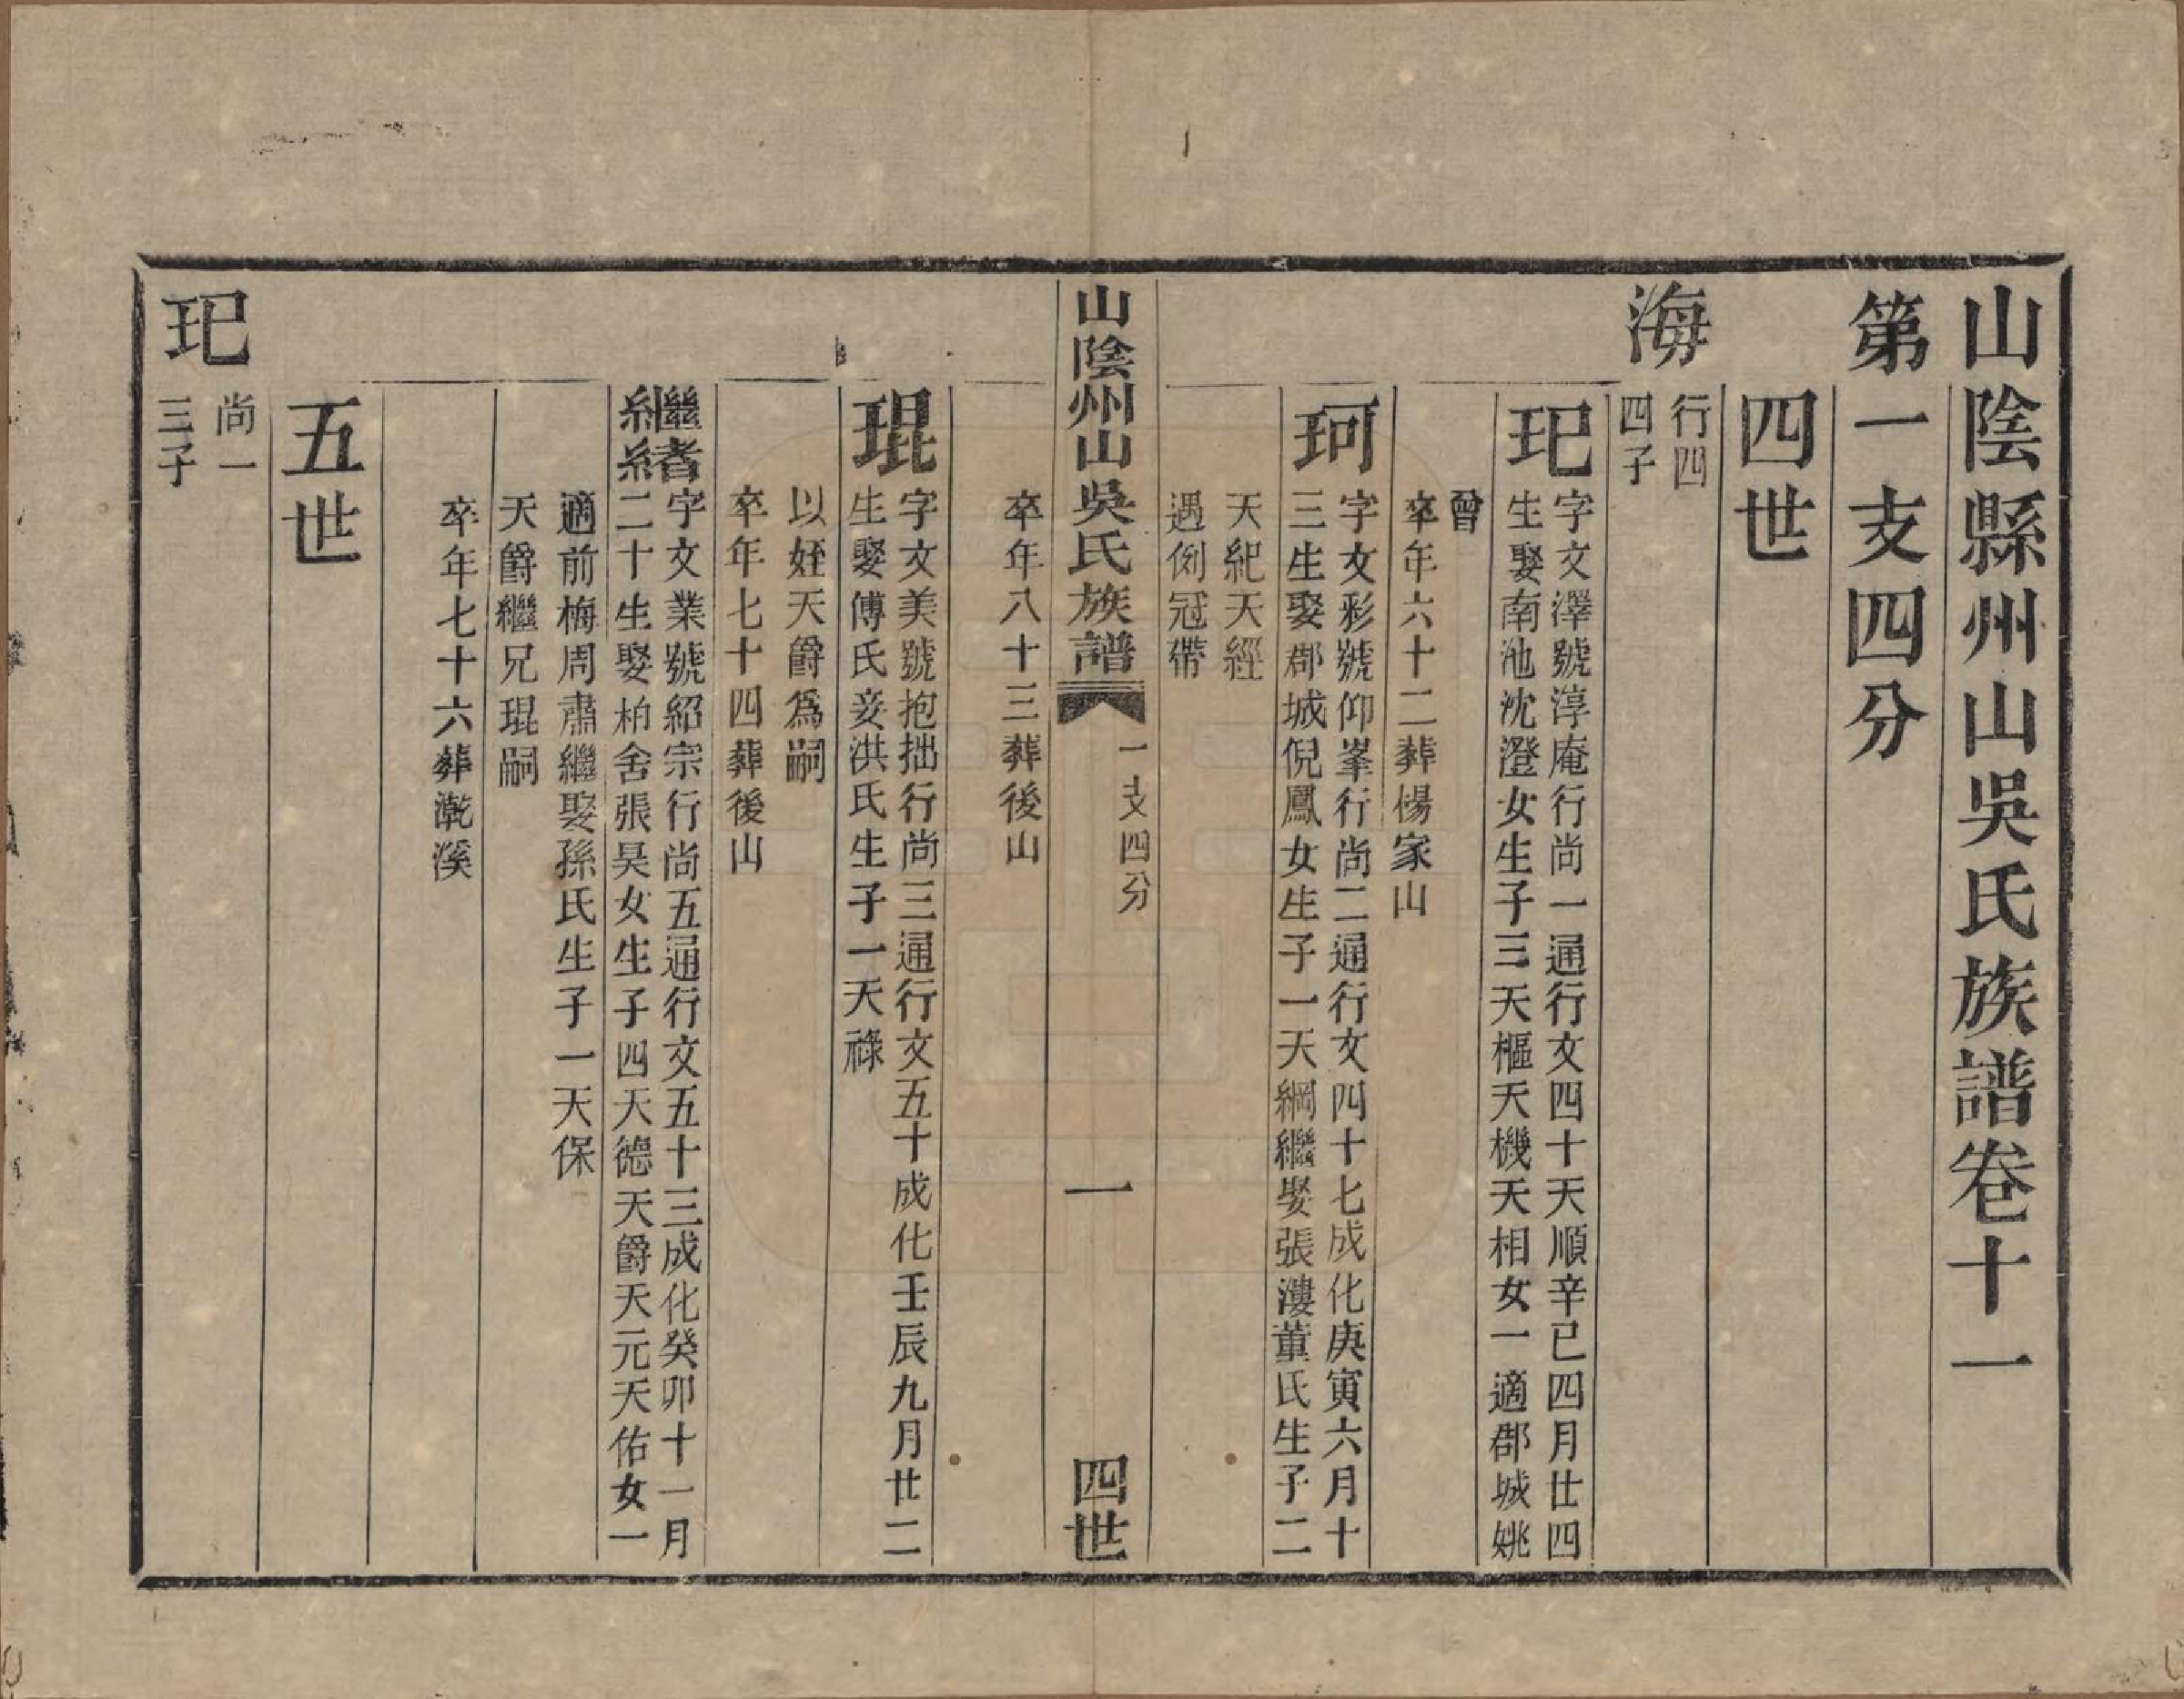 山陰縣州山吳氏族譜卷十一
第一支四分
四世
海
行四
四子
玘
字文澤號淳庵行尚一通行文四十天順辛巳四月廿四
生娶南池沈澄女生子三天樞天機天相女一適郡城姚
曾
卒年六十二葬楊家山
珂
字文彩號仰峯行尚二通行文四十七成化庚寅六月十
三生娶郡城倪鳳女生子一天綱繼娶張漊董氏生子二
天紀天經
遇例冠帶
山陰州山吳氏族譜
一支四分
一
四世
卒年八十三葬後山
琨
字文美號抱拙行尚三通行文五十成化壬辰九月廿二
生娶傅氏妾洪氏生子一天祿
以姪天爵為嗣
卒年七十四葬後山
繼緒
字文業號紹宗行尚五通行文五十三成化癸卯十一月
二十生娶柏舍張昊女生子四天德天爵天元天佑女一
適前梅周肅繼娶孫氏生子一天保
天爵繼兄琨嗣
卒年七十六葬漧溪
五世
玘
尚一
三子